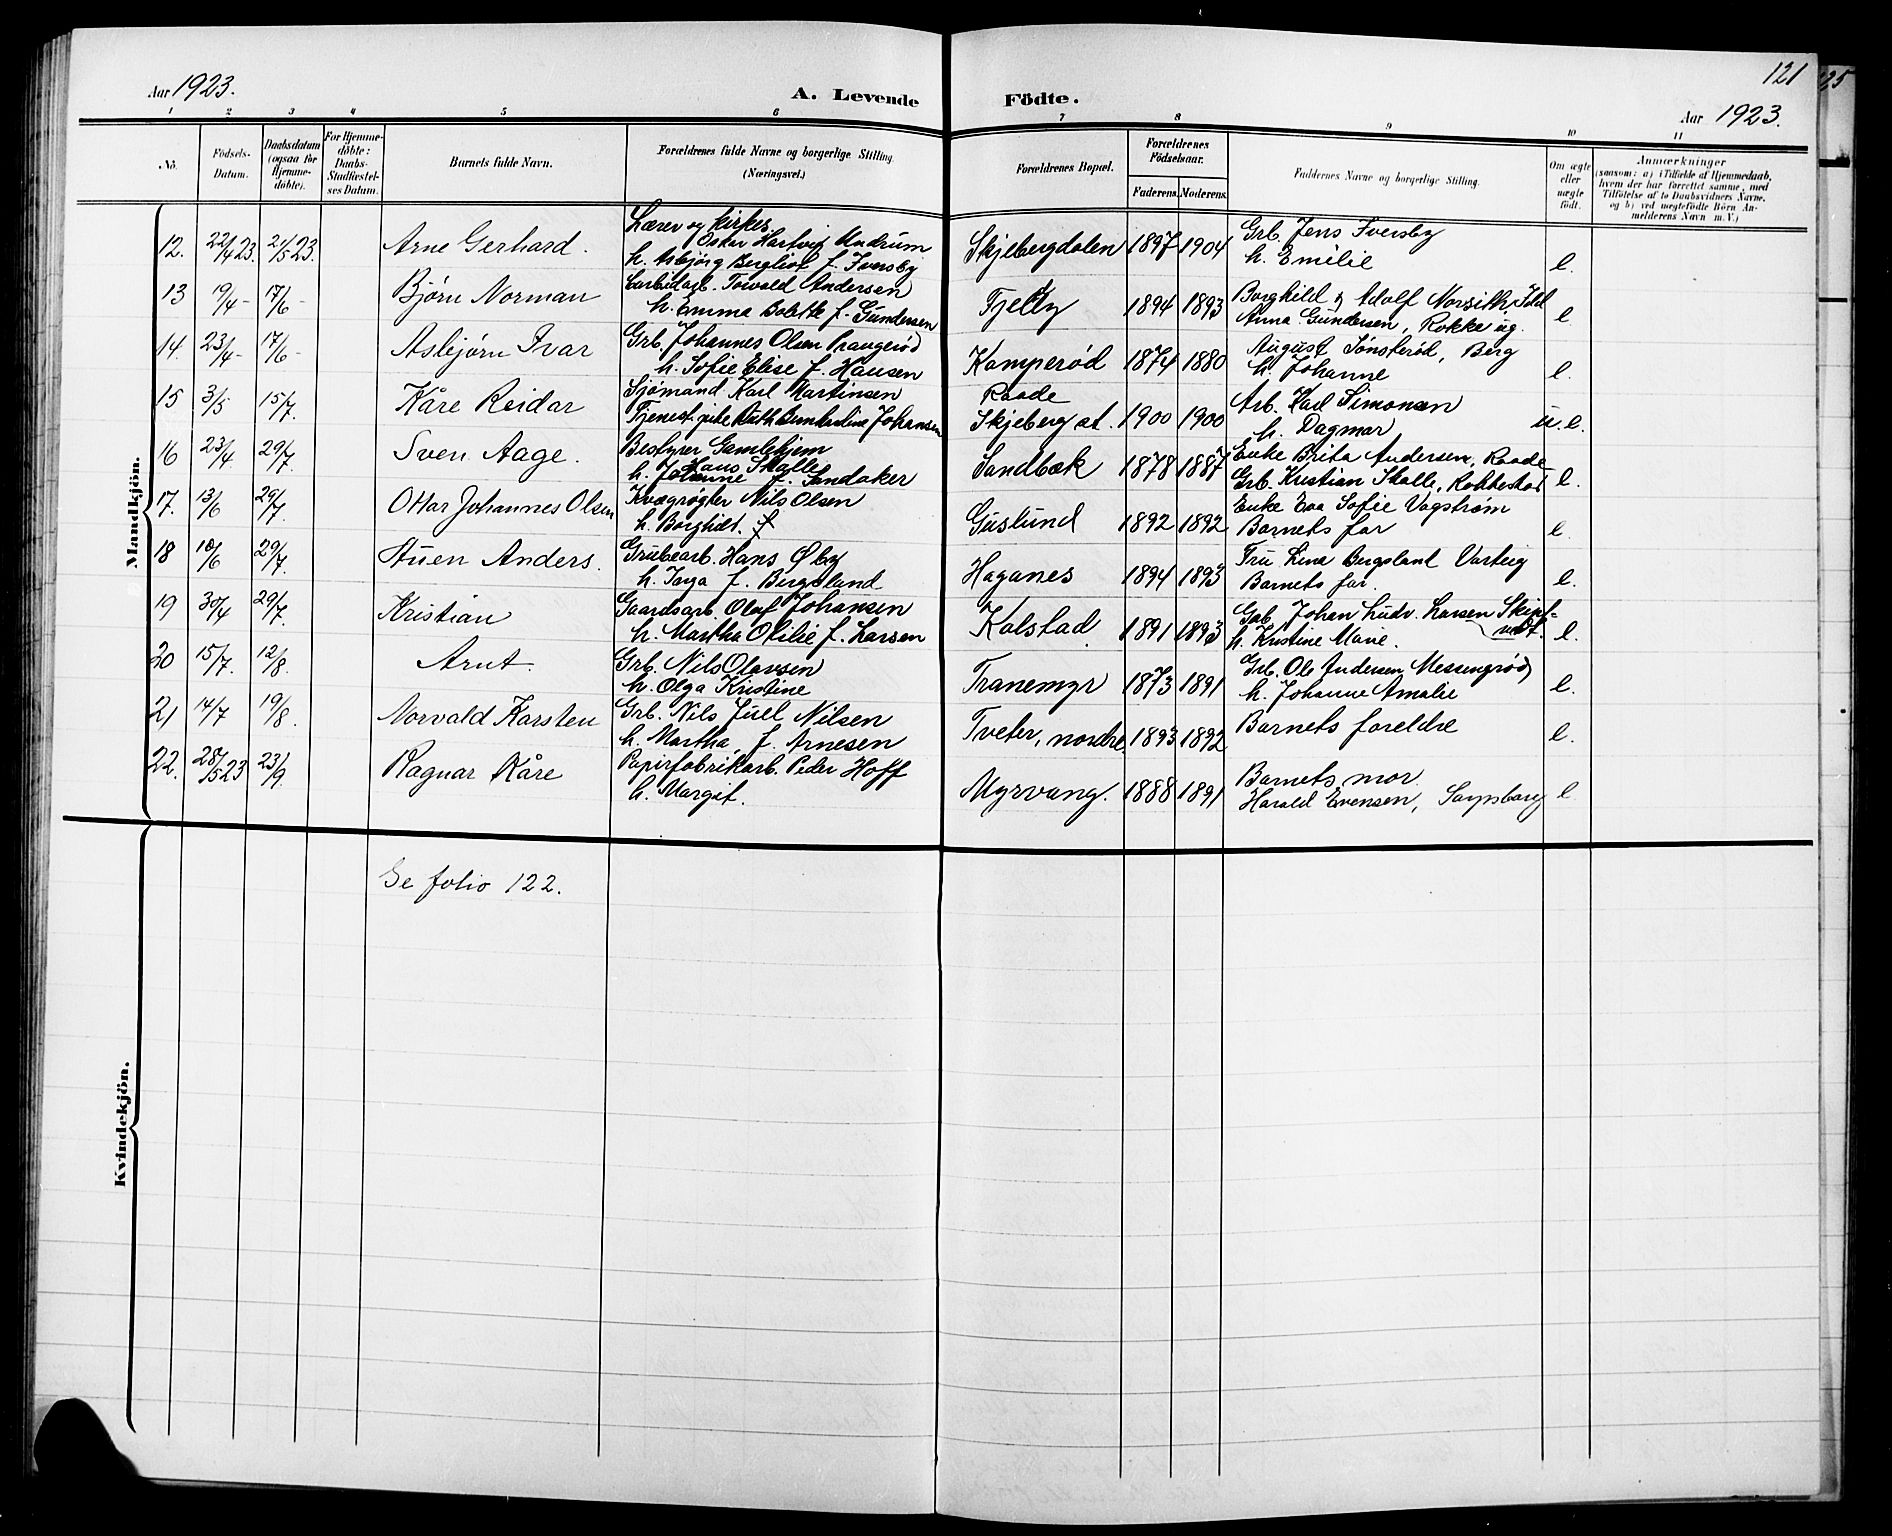 Aar 1923.
A. Levende Födte.
121
Aar 1923.
1 2 3 4 5 6 7 8 9 10 11
No. Födsels-Datum. Daabsdatum (ogsaa for Hjemme-döbte). For Hjemme-döbte: Daabs-Stadfæstel-ses Datum. Barnets fulde Navn. Forældrenes fulde Navne og borgerlige Stilling. (Næringsvei.) Forældrenes Bopæl. Forældrenes Födselsaar. Faderens. Moderens. Faddernes Navne og borgerlige Stilling. Om ægte eller uægte födt.
Anmærkninger
(saasom: a) i Tilfælde af Hjemmedaab,
hvem der har forrettet samme, med
Tilföielse af to Daabsvidners Navne,
og b) ved uægtefödte Börn An-
melderens Navn m. V.)
Mandkjön.
12. 22/4 23. 21/5 23. Arne Gerhard. Lærer og kirkes. Oskar Hartvig Undrum
h. Asbjörg Bergliot f. Iversby Skjebergdalen 1897 1904 Grb. Jens Iversby
h. Emilie e.
13 19/4 - 17/6 - Bjørn Norman Torvald Andersen
h. Emma Bolette f. Gundersen Fjelly 1894 1893 Borghild & Adolf Idd
Anna Gundersen, Rokke ug. e.
14. 23/4 - 17/6 - Asbjørn Ivar Grb. Johannes Olsen Prangerød
h. Sofie Elise f. Hansen Kamperød 1874 1880 August Tønsterød, Berg
h. Johanne e.
15 3/5 15/7. Kåre Reidar Sjømand Karl Martinsen Raade
Tjenest. pike Ruth Bernhardine Johansen Skjeberg at. 1900 1900 Arb. Karl Simonsen
h. Dagmar u.e.
16 23/4. 29/7. Sven Aage. Bestyrer Gamlehjem
Hans Skolle
h. Johanne f. Sandaker Sandbæk 1878 1887 Enke Brita Andersen, Raade
Grb. Kristian Skolle, Rokkestad e.
17. 13/6 29/7. Ottar Johannes Olsen Kvægrøgter Nils Olsen
h. Borghild. f Guslund 1892 1892 Enke Eva Sofie Vagstrøm
Barnets far e.
18 10/6 29/7. Anders. Grubearb. Hans Øby
h. Inga f. Bergsland Haganes 1894 1893 Fru Lina Bergsland Varteig
Barnets far. e.
19 30/4 29/7. Kristian Gaardsarb. Olaf Johansen
h. Martha Otilie f. Larsen Kolstad 1891 1893 Grb. Johan Ludv. Larsen Skipt-
vedt.
h. Kristine Marie. e.
20 15/7. 12/8. Arnt. Grb. Nils Olavsen
h. Olga Kristine Tranemyr 1873 1891 Grb. Ole Andersen Messengrød
h. Johanne Amalie e.
21 14/7 19/8. Norvald Karsten Grb. Nils Juel Nilsen
h. Martha, f. Arnesen Tveter, nordre. 1893 1892 Barnets foreldre e.
22. 28/5 23 23/9. Ragnar Kåre Papirfabrikarb. Peder Hoff
h. Margit. Myrvang. 1888 1891 Barnets mor.
Harald Evensen, Sarpsborg e
Kvindekjön.
Se folio 122.